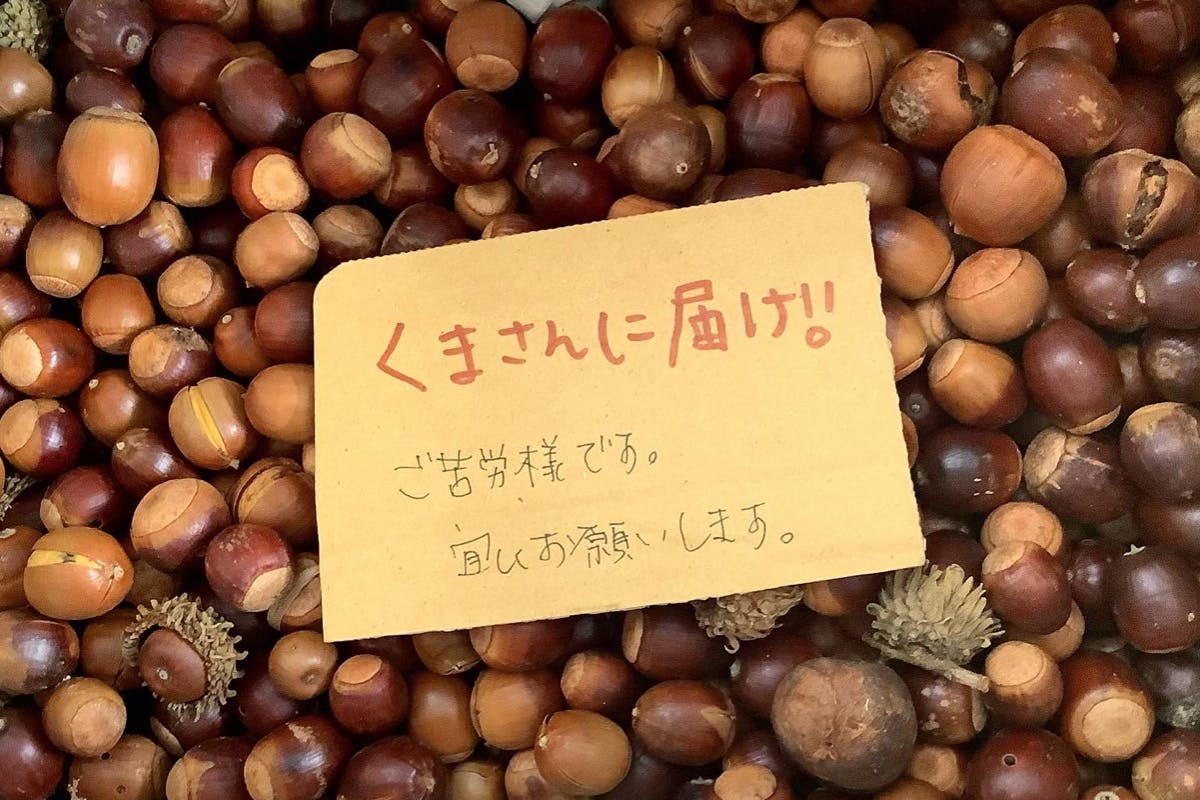 くまさんに届け!!
ご苦労様です。
宜しくお願いします。